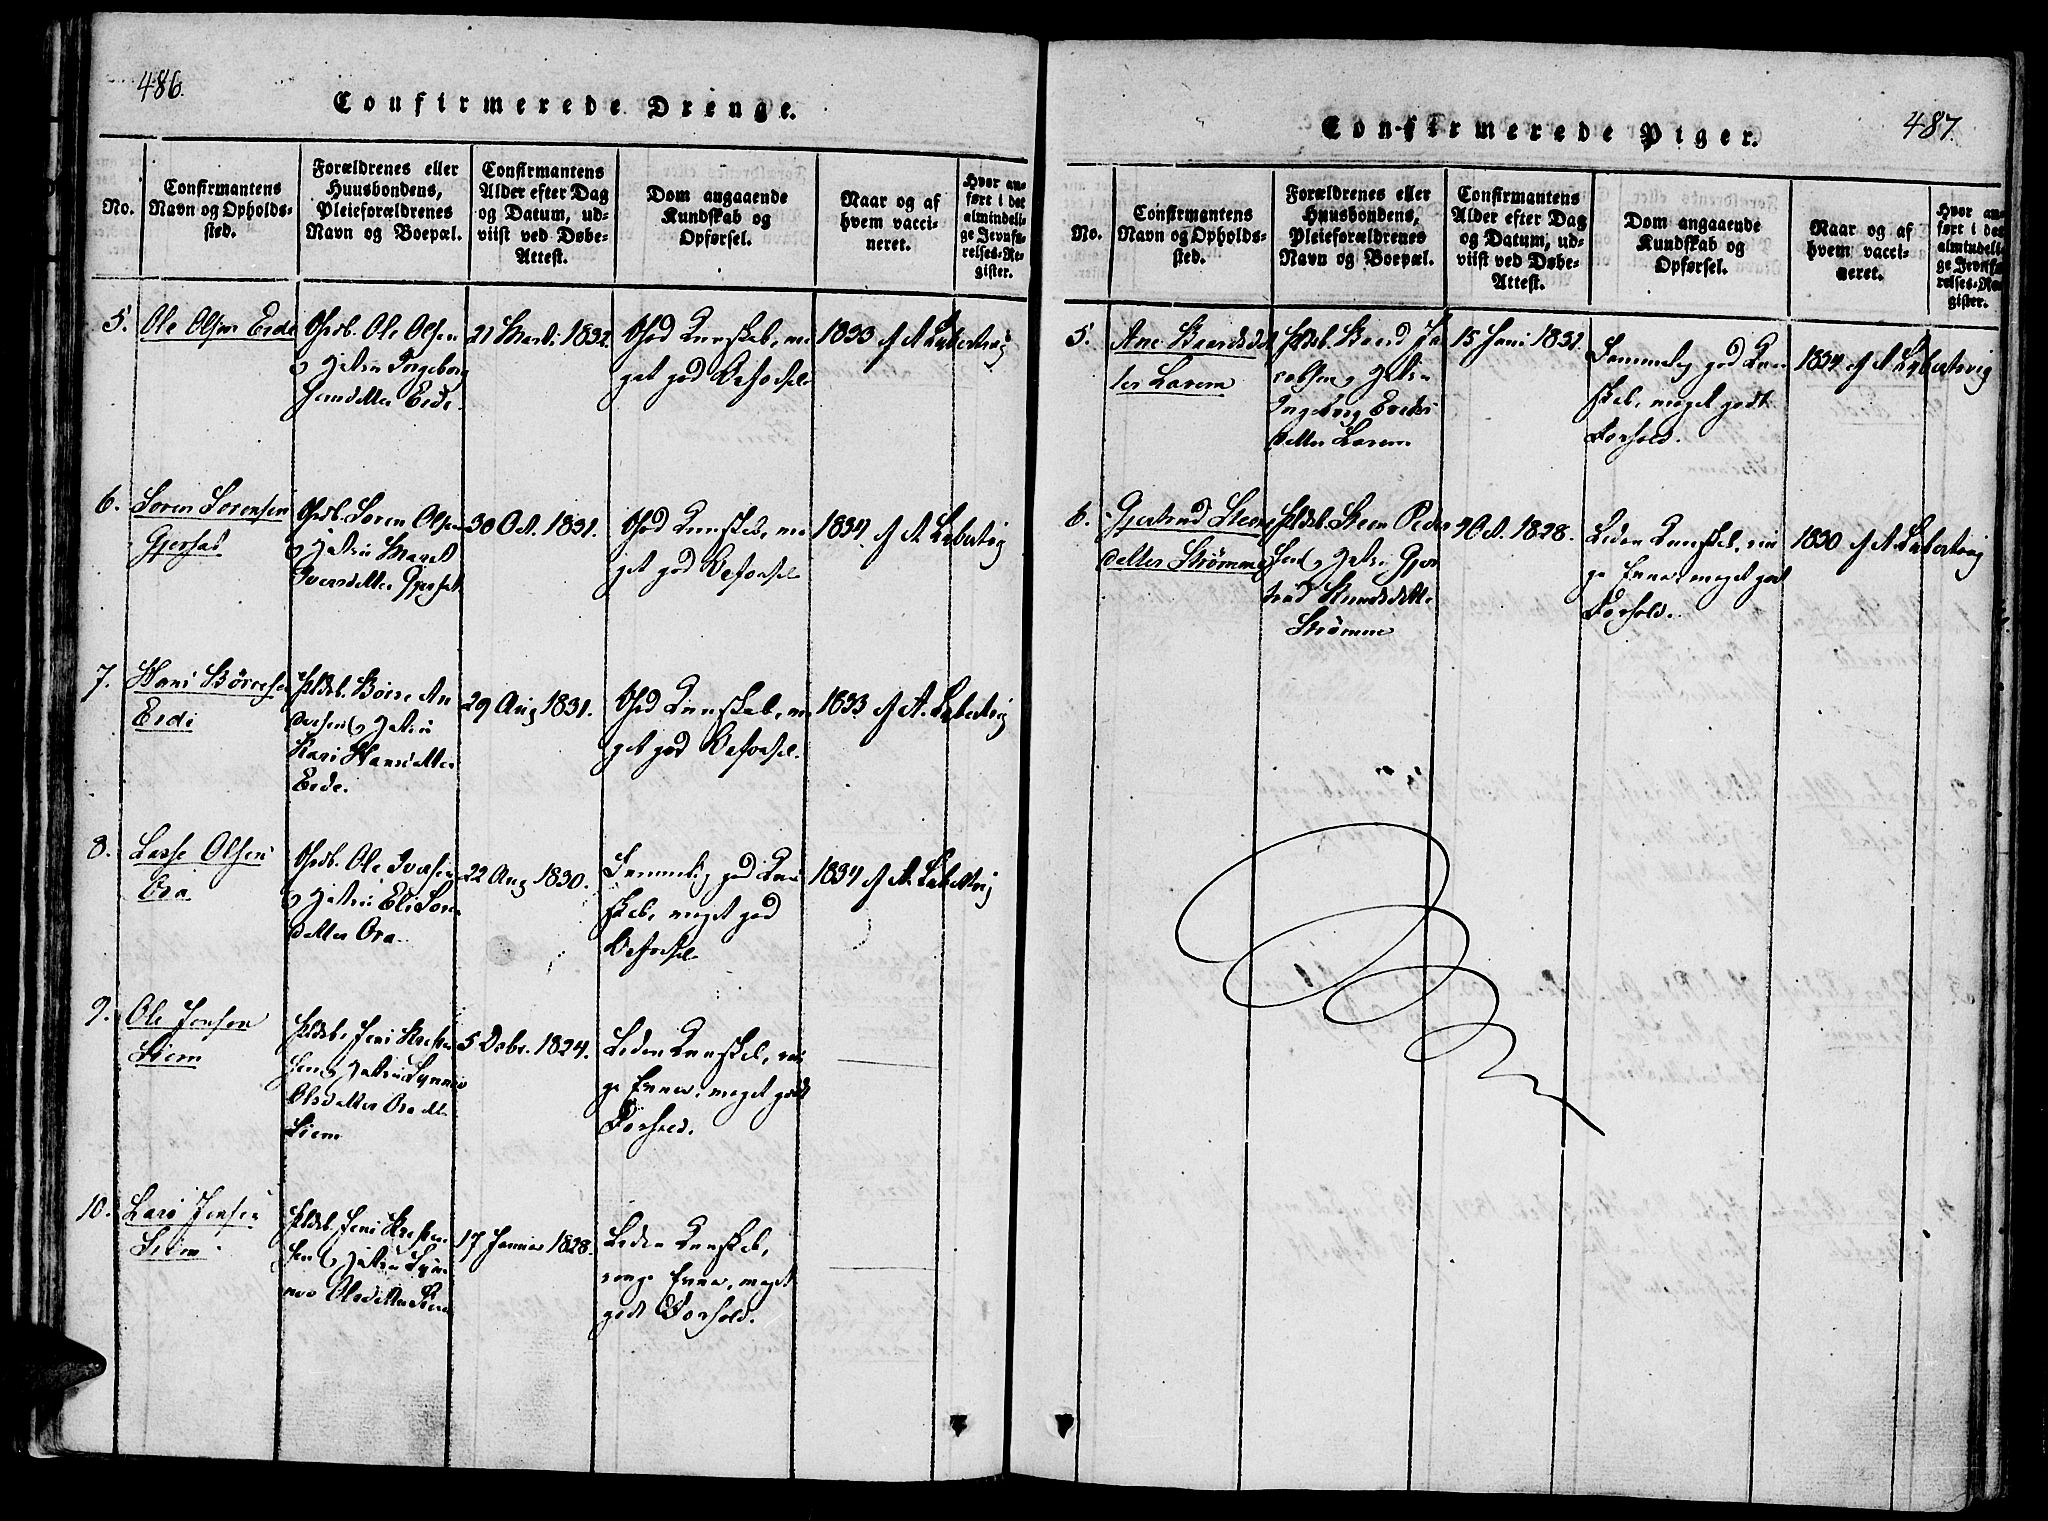 486.
Confirmerede Drenge.
No.
Confirmantens
Navn og Opholds-
sted.
Forældrenes eller
Huusbondens,
Pleieforældrenes
Navn og Boepæl.
Confirmantens
Alder efter Dag
og Datum, ud-
viist ved Døbe-
Attest.
Dom angaaende
Kundskab og
Opførsel.
Naar og af
hvem vacci-
neret.
Hvor an-
ført i det
almindeli-
ge Jevnfø-
relses-Re-
gister.
5.
Ole Olsen Eide
Grdb. Ole Olsen
og Hstru Ingeborg
Eide
21 Marti 1832.
God Kunskab, me
get god Opførsel
1833 af A. Lybertvig
6.
Søren Sørensen
Gjerset
Grdb. Søren Olsen
og Hstru Maret
Iversdatter Gjerset
30 Oct. 1831.
God Kunskab, me
get god Opførsel
1834 af A. Lybertvig
7.
Hans Børresen
Eide
Hsdb. Børre An
dersen og Hstru
Kari Hansdatter
Eide.
29 Aug 1831.
God Kunskab, me
get god Opførsel.
1833 af A. Lybertvig
8.
Lasse Olsen
Ora
Grdb. Ole Iversen
og Hstru Eli Lars
datter Ora
22 Aug 1830.
Temmelig god Kun
skab, meget god
Opførsel
1834 af A. Lybertvig
9.
Ole Jensen
Siem
Hsdb. Jens
sen og Hstru Synnev
Olsdatter
Siem
5 Decbr. 1824.
Liden Kunskab, rin
ge Evner, meget godt
Forhold.
10.
Lars Jensen
Siem
Hsdb. Jens
sen og Hstru Syn
nev Olsdatter Siem
17 Januar 1828.
Liden Kunskab,
ringe Evner, meget
godt Forhold.
487.
Confirmerede Piger.
No.
Confirmantens
Navn og Opholds-
sted.
Forældrenes eller
Huusbondens,
Pleieforældrenes
Navn og Boepæl.
Confirmantens
Alder efter Dag
og Datum, ud-
viist ved Døbe-
Attest.
Dom angaaende
Kundskab og
Opførsel.
Naar og af
hvem vacci-
neret.
Hvor an-
ført i det
almindeli-
ge Jevnfø-
relses-Re-
gister.
5.
Ane Baardsdat
ter Larem
Hsdb. Baard Ja
cobsen og Hstru
Ingeborg
datter Larem
15 Juni 1831.
Temmelig god Kun
skab, meget godt
Forhold.
1834 af A. Lybertvig
6.
Gjertrud Steens
datter Strømme
Hsdb. Steen Peder
sen og Hstru Gjer
trud Knudsdatter
Strømme
Oct. 1828.
Liden Kunskab, rin
ge Evner, meget godt
Forhold.
1830 af A. Lybertvig